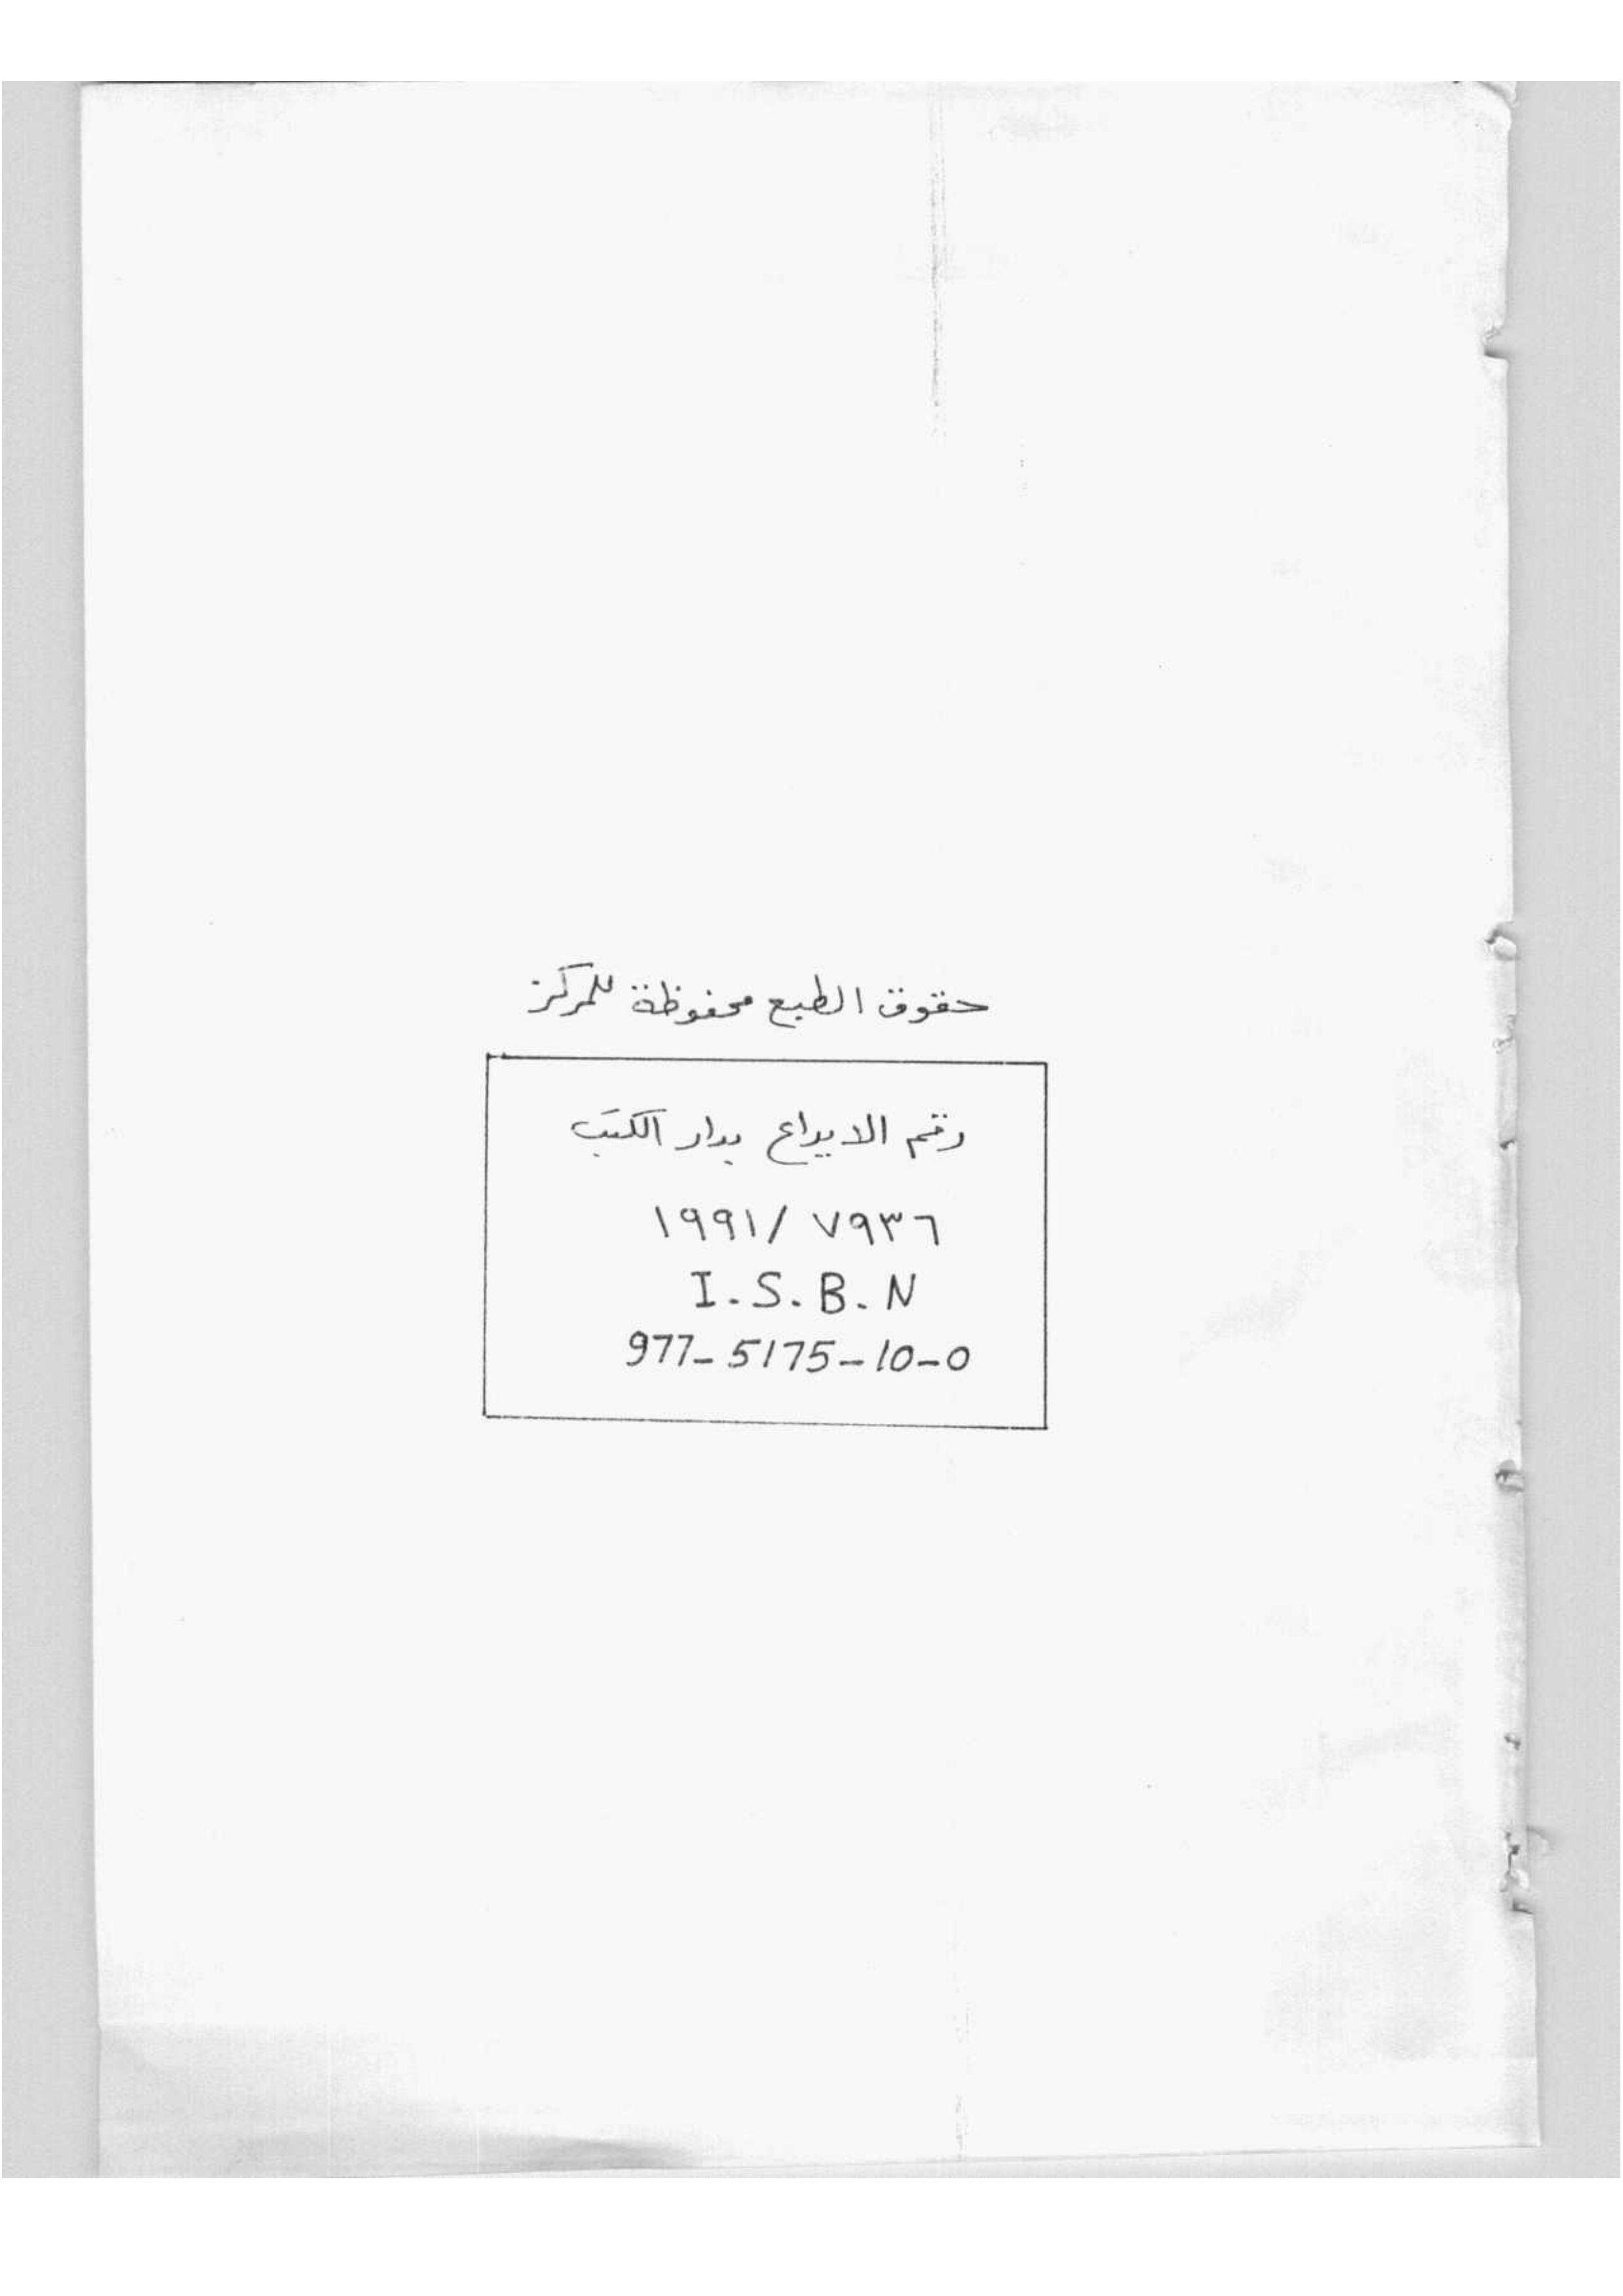 حقوق الطبع محفوظة للمركز
رقم الايداع بدار الكتب
١٩٩١/ ٧٩٣٦
I.S.B.N
977-5175-10-0